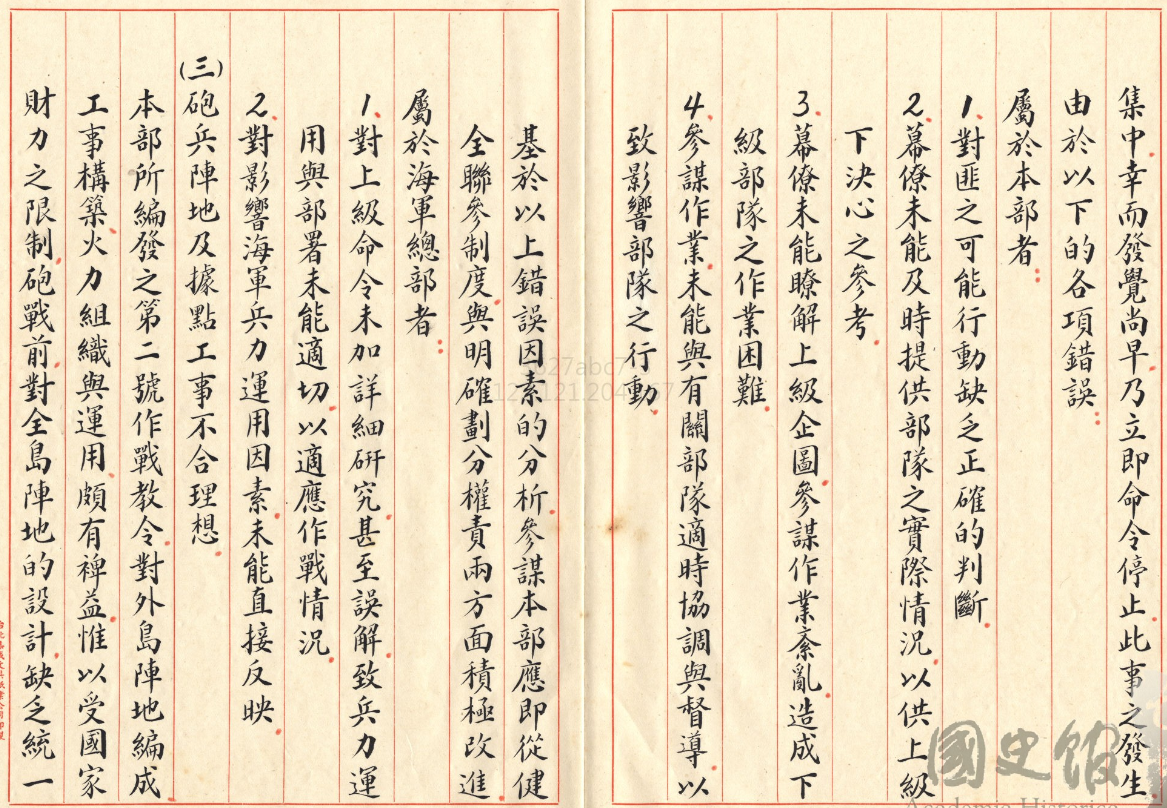 集中幸而發覺尚早乃立即命令停止此事之發生
由於以下的各項錯誤：
屬於本部者：
1.對匪之可能行動缺乏正確的判斷。
2.幕僚未能及時提供部隊之實際情況。以供上級
下決心之參考。
3.幕僚未能瞭解上級企圖。參謀作業紊亂。造成下
級部隊之作業困難。
4.參謀作業。未能與有關部隊適時協調與督導。以
致影響部隊之行動。
基於以上錯誤因素的分析。參謀本部應即從健
全聯參制度。與明確劃分權責兩方面積極改進。
屬於海軍總部者：
1.對上級命令未加詳細研究。甚至誤解。致兵力運
用與部署未能適切。以適應作戰情況。
2.對影響海軍兵力運用因素。未能直接反映。
(三)砲兵陣地及據點工事不合理想。
本部所編發之第二號作戰教令。對外島陣地編成。
工事構築。火力組織與運用。頗有裨益。惟以受國家
財力之限制。砲戰前。對全島陣地的設計。缺乏統一
國史館
Academia Historica